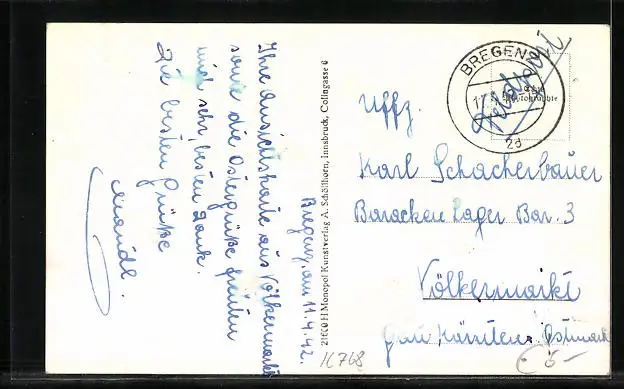 Bregenz, am 11.4.42.
Ihre Ansichtskarte aus Völkermarkt
sowie die Ostergrüße freuten
mich sehr, besten Dank.
Die besten Grüße
21600 H Monopol Kunstverlag A. Schöllhorn, Innsbruck, Colingasse 6
BREGENZ
2d
Feldpost
Uffz.
Karl Schacherbauer
Baracken Lager Bar. 3
Völkermarkt
Gau Kärnten. Ostmark
16768
€ 5-